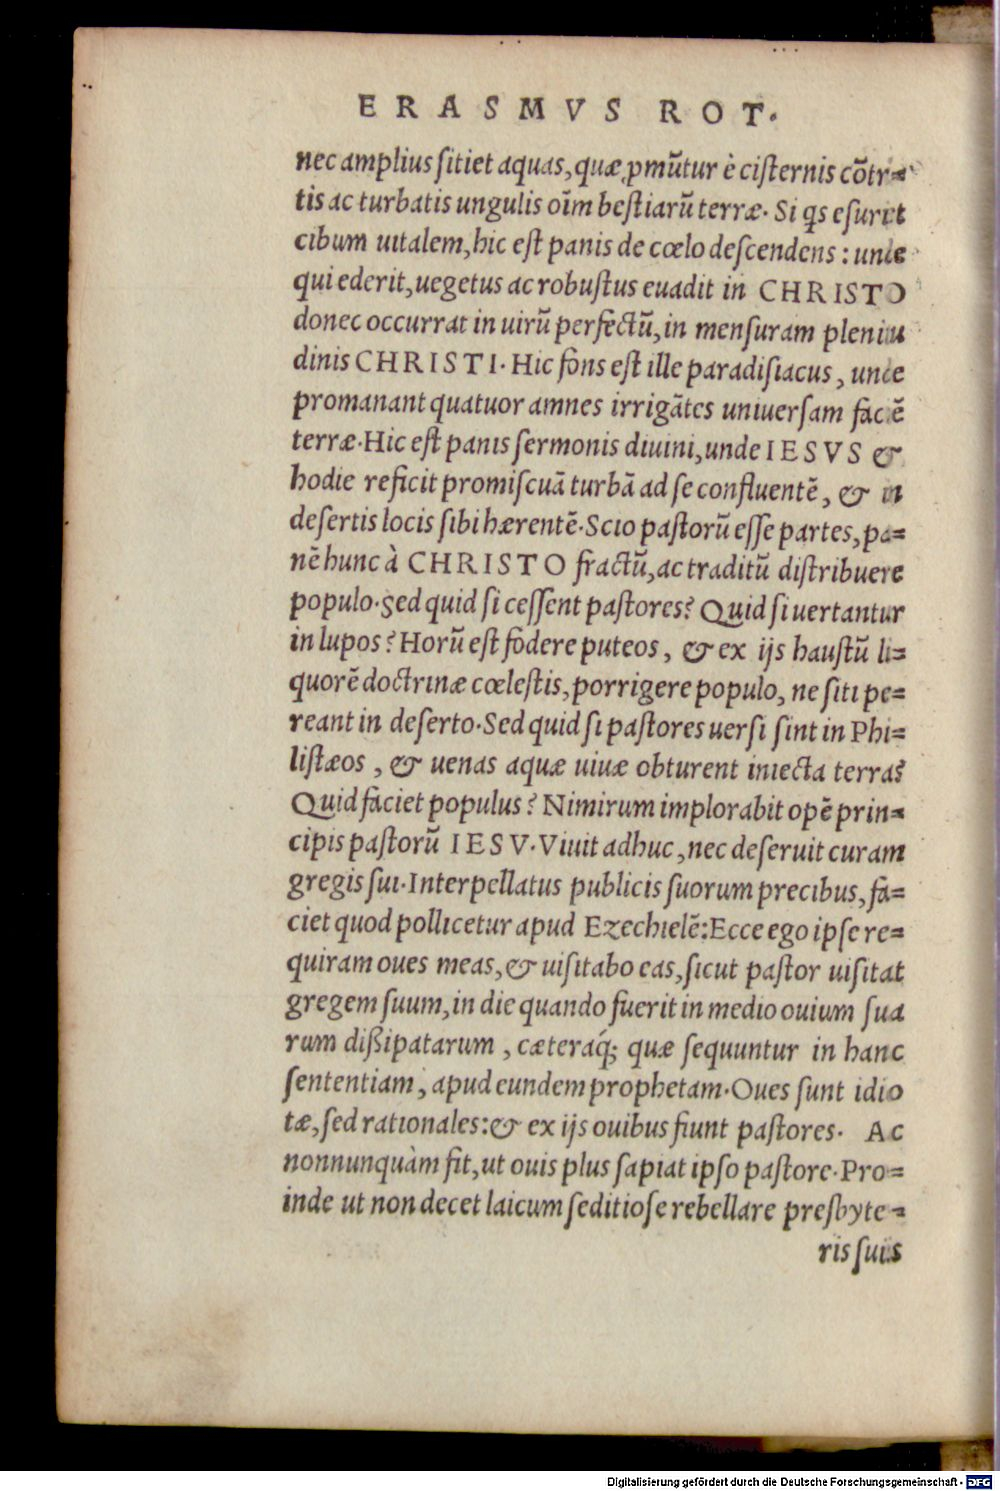 ERASMVS ROT.
nec amplius sitiet aquas, quæ ꝓmũtur è cisternis cõtr=
tis ac turbatis ungulis oĩm bestiarũ terræ. Si qs esurit
cibum uitalem, hic est panis de cœlo descendens: unde
qui ederit, uegetus ac robustus euadit in CHRISTO
donec occurrat in uirũ perfectũ, in mensuram plenitu
dinis CHRISTI. Hic fons est ille paradisiacus, unde
promanant quatuor amnes irrigãtes uniuersam faciẽ
terræ. Hic est panis sermonis diuini, unde IESVS &
hodie reficit promiscuã turbã ad se confluentẽ, & in
desertis locis sibi hærentẽ. Scio pastorũ esse partes, pa=
nẽ hunc à CHRISTO fractũ, ac traditũ distribuere
populo. Sed quid si cessent pastores? Quid si uertantur
in lupos? Horũ est fodere puteos, & ex ijs haustũ li=
quorẽ doctrinæ cœlestis, porrigere populo, ne siti pe=
reant in deserto. Sed quid si pastores uersi sint in Phi=
listæos, & uenas aquæ uiuæ obturent iniecta terra?
Quid faciet populus? Nimirum implorabit opẽ prin=
cipis pastorũ IESV. Viuit adhuc, nec deseruit curam
gregis sui. Interpellatus publicis suorum precibus, fa=
ciet quod pollicetur apud Ezechielẽ: Ecce ego ipse re=
quiram oues meas, & uisitabo eas, sicut pastor uisitat
gregem suum, in die quando fuerit in medio ouium sua
rum dißipatarum, cæteraq́; quæ sequuntur in hanc
sententiam, apud eundem prophetam. Oues sunt idio
tæ, sed rationales: & ex ijs ouibus fiunt pastores. Ac
nonnunquàm fit, ut ouis plus sapiat ipso pastore. Pro=
inde ut non decet laicum seditiose rebellare presbyte=
ris suis
Digitalisierung gefördert durch die Deutsche Forschungsgemeinschaft - DFG